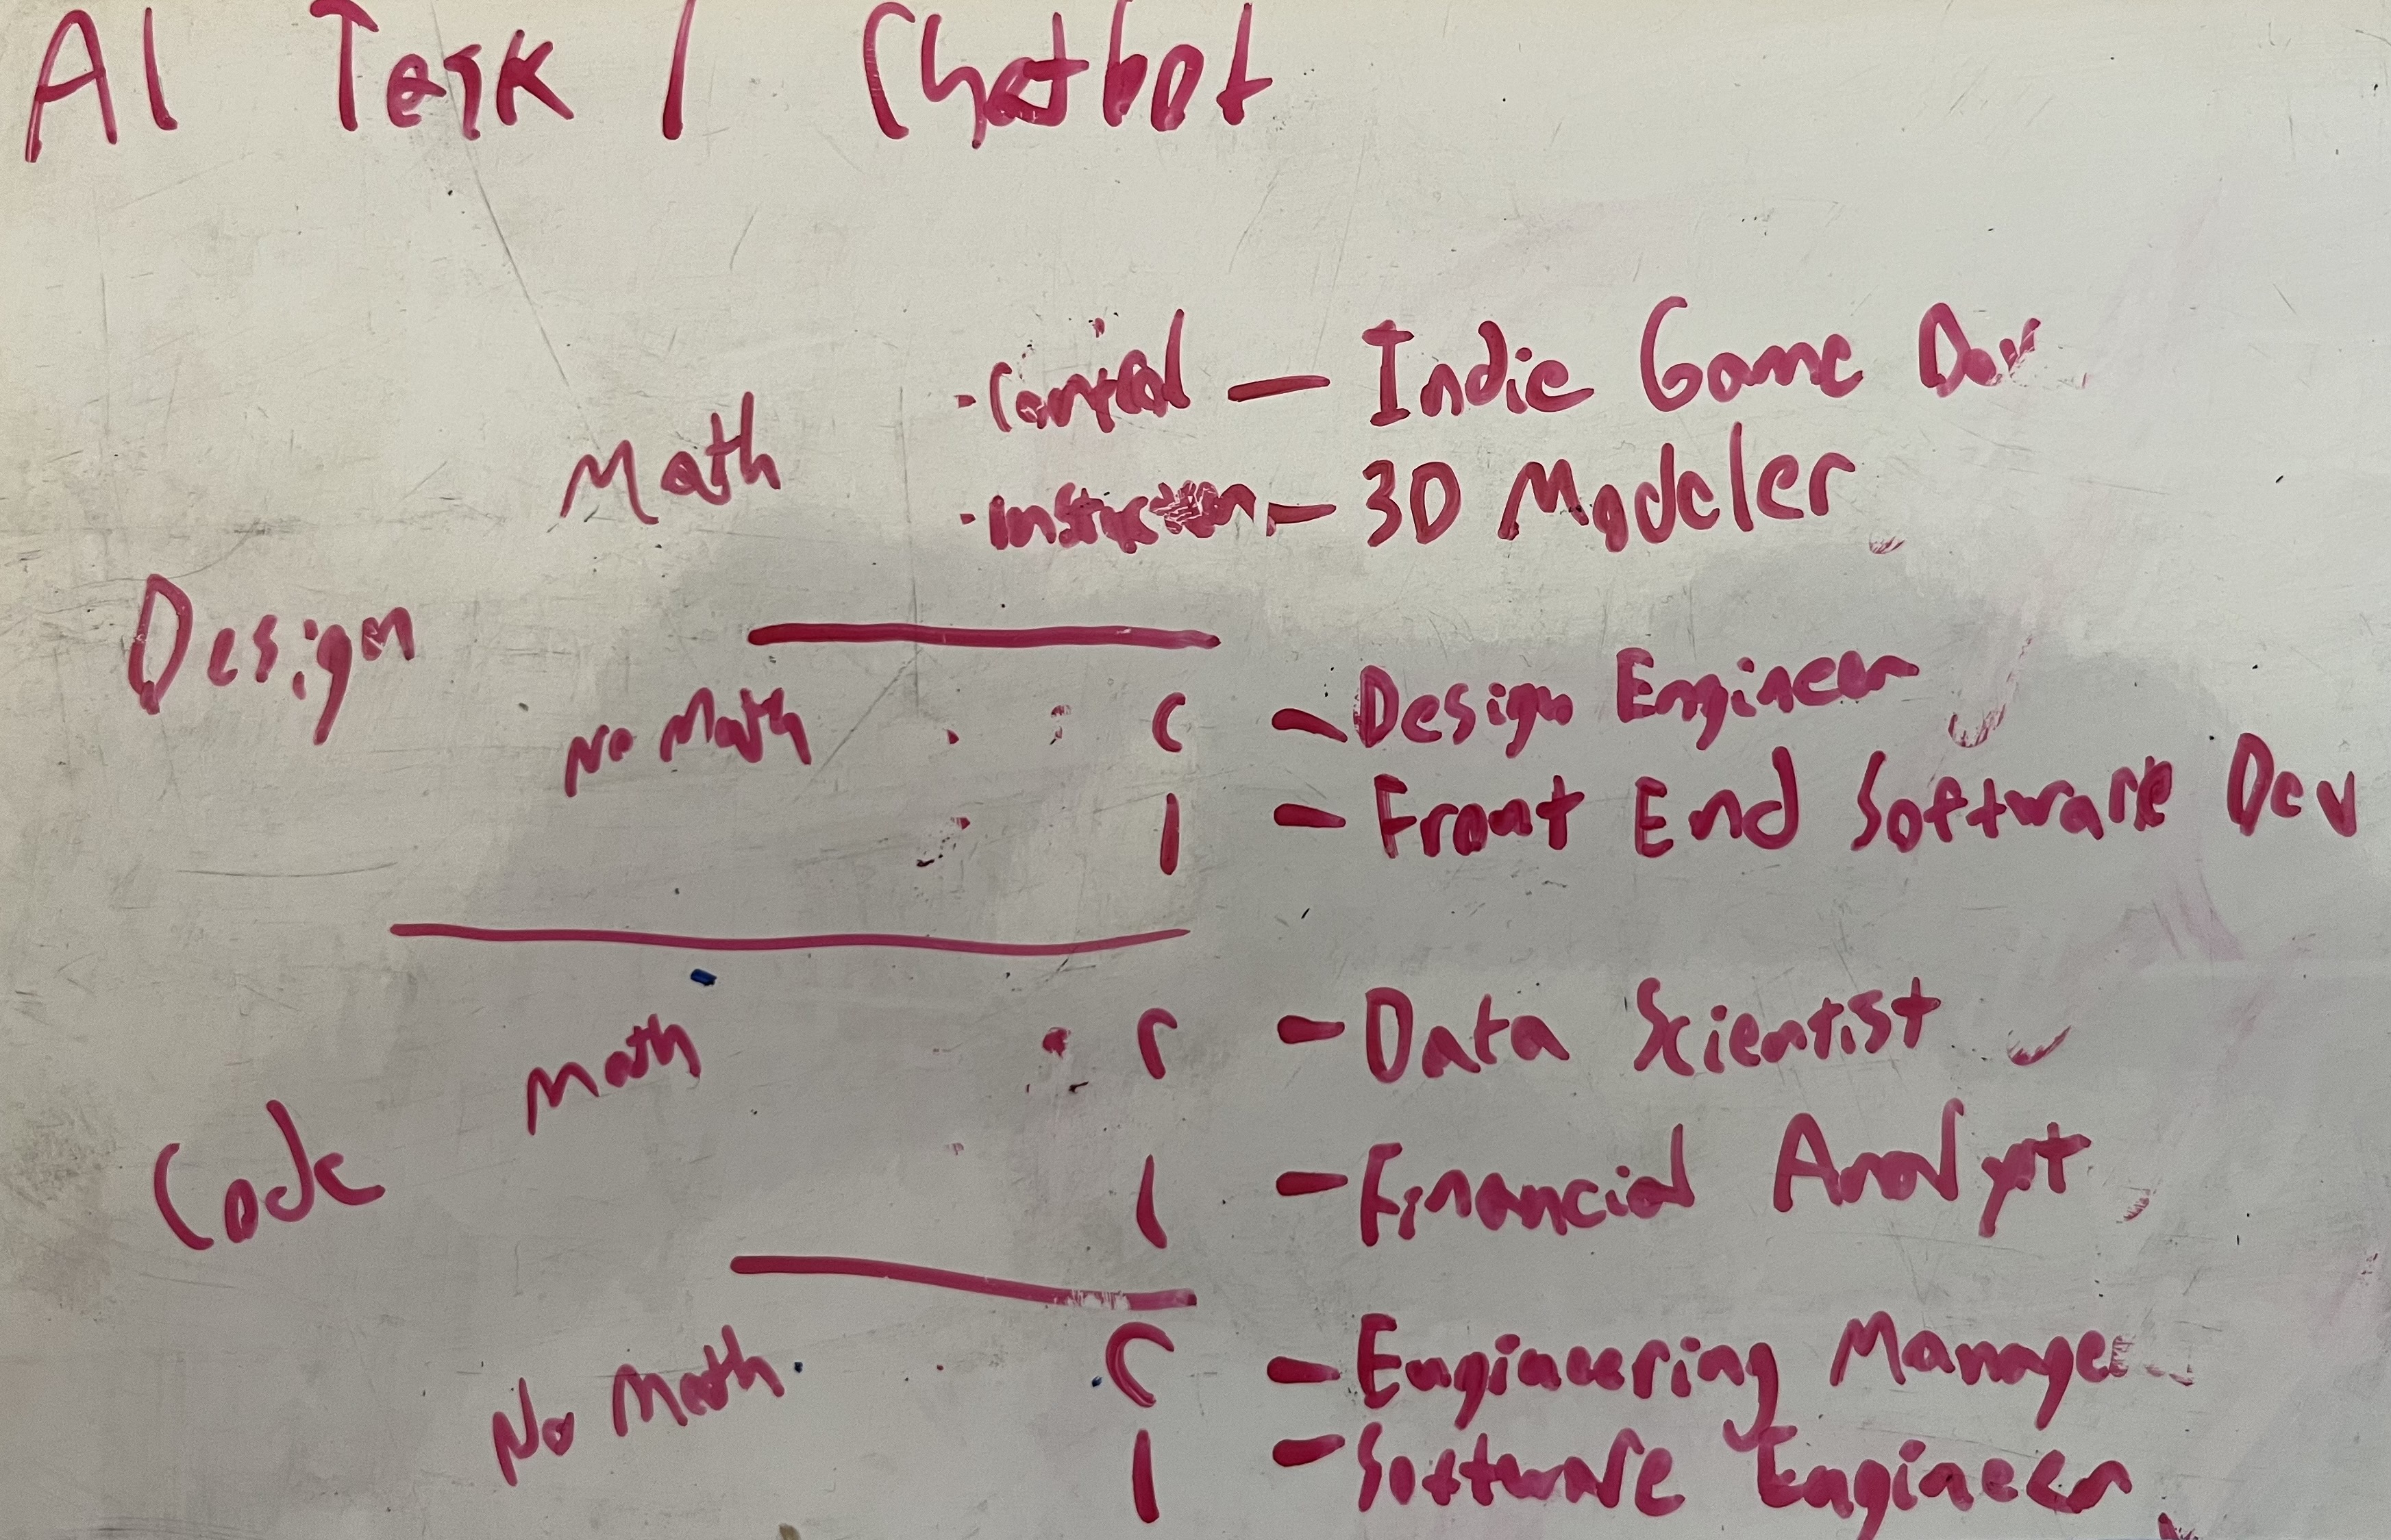 AI Task / Chatbot
·Control — Indie Game Dev
Math
·Instruction — 3D Modeler
Design
No Math · C - Design Engineer
· I - Front End Software Dev
Math · C - Data Scientist
Code
I - Financial Analyst
No Math · C - Engineering Manager
I - Software Engineer